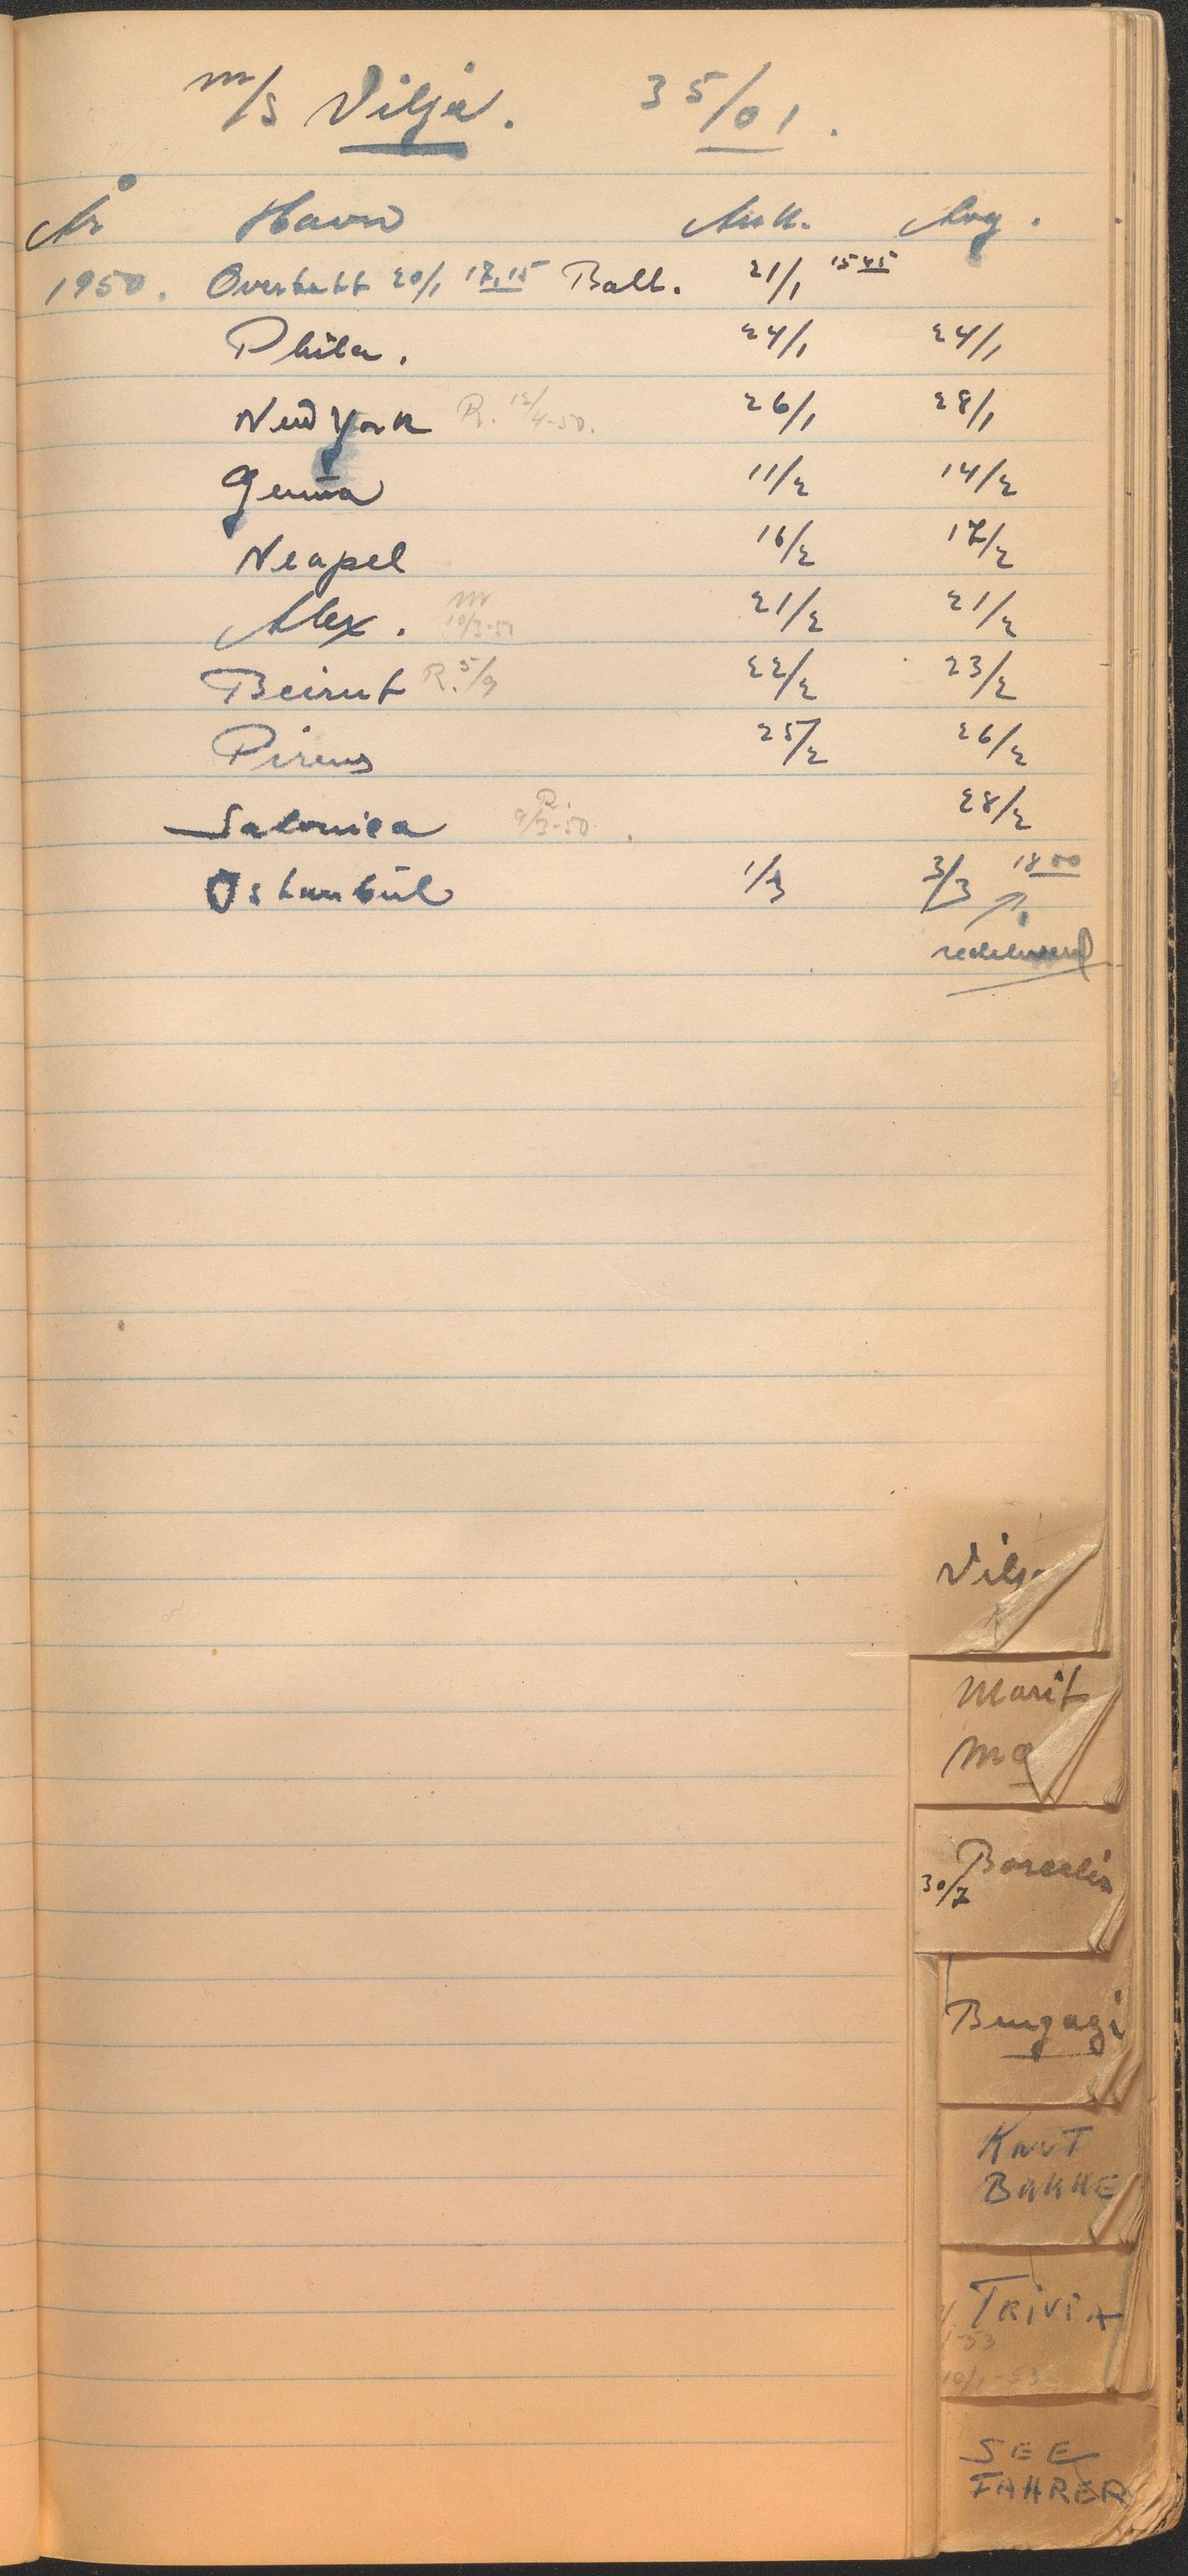 m/s Vilja. 35/01.
År Havn Ank. Avg.
1950. Overtatt 20/1 17.15 Balt. 21/1 15 45
Phila. 24/1 24/1
New York R. 12/4-50. 26/1 28/1
Genua 11/2 14/2
Neapel 16/2 17/2
Alex. 21/2 21/2
Beirut R. 5/9 22/2 23/2
Pireus 25/2 26/2
Salonica R. 9/3-50. 28/2
Istanbül 1/3 3/3 18 00
Vilja
Marit
Mæ
Barcelis
30/7
Bengazi
KNUT
BAKKE
TRIVIA
SEE
FAHRER